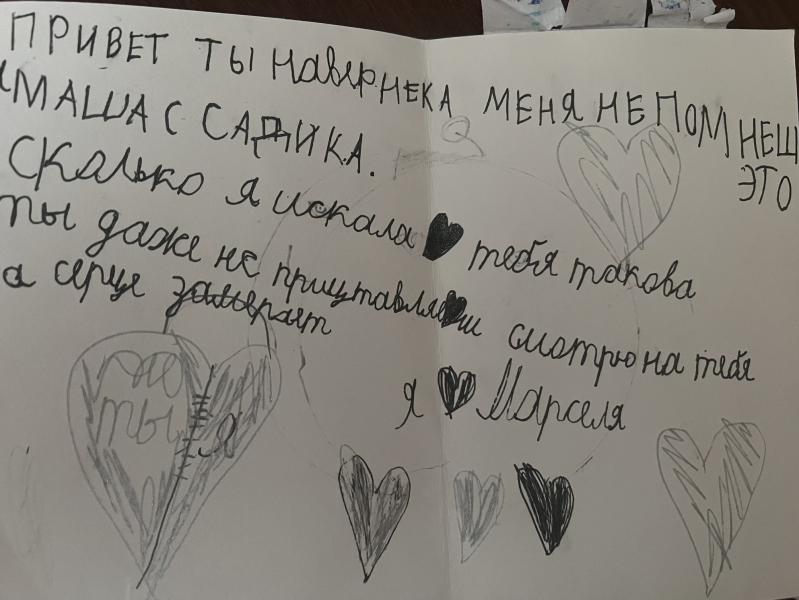 ПРИВЕТ ТЫ НАВЕРНЕКА МЕНЯ НЕ ПОМНЕШ
ЭТО
МАША С САДИКА.
Сколько я искала тебя такова
ты даже не приштавляеш смотрю на тебя
а серце замерает
я Марселя
ты
я